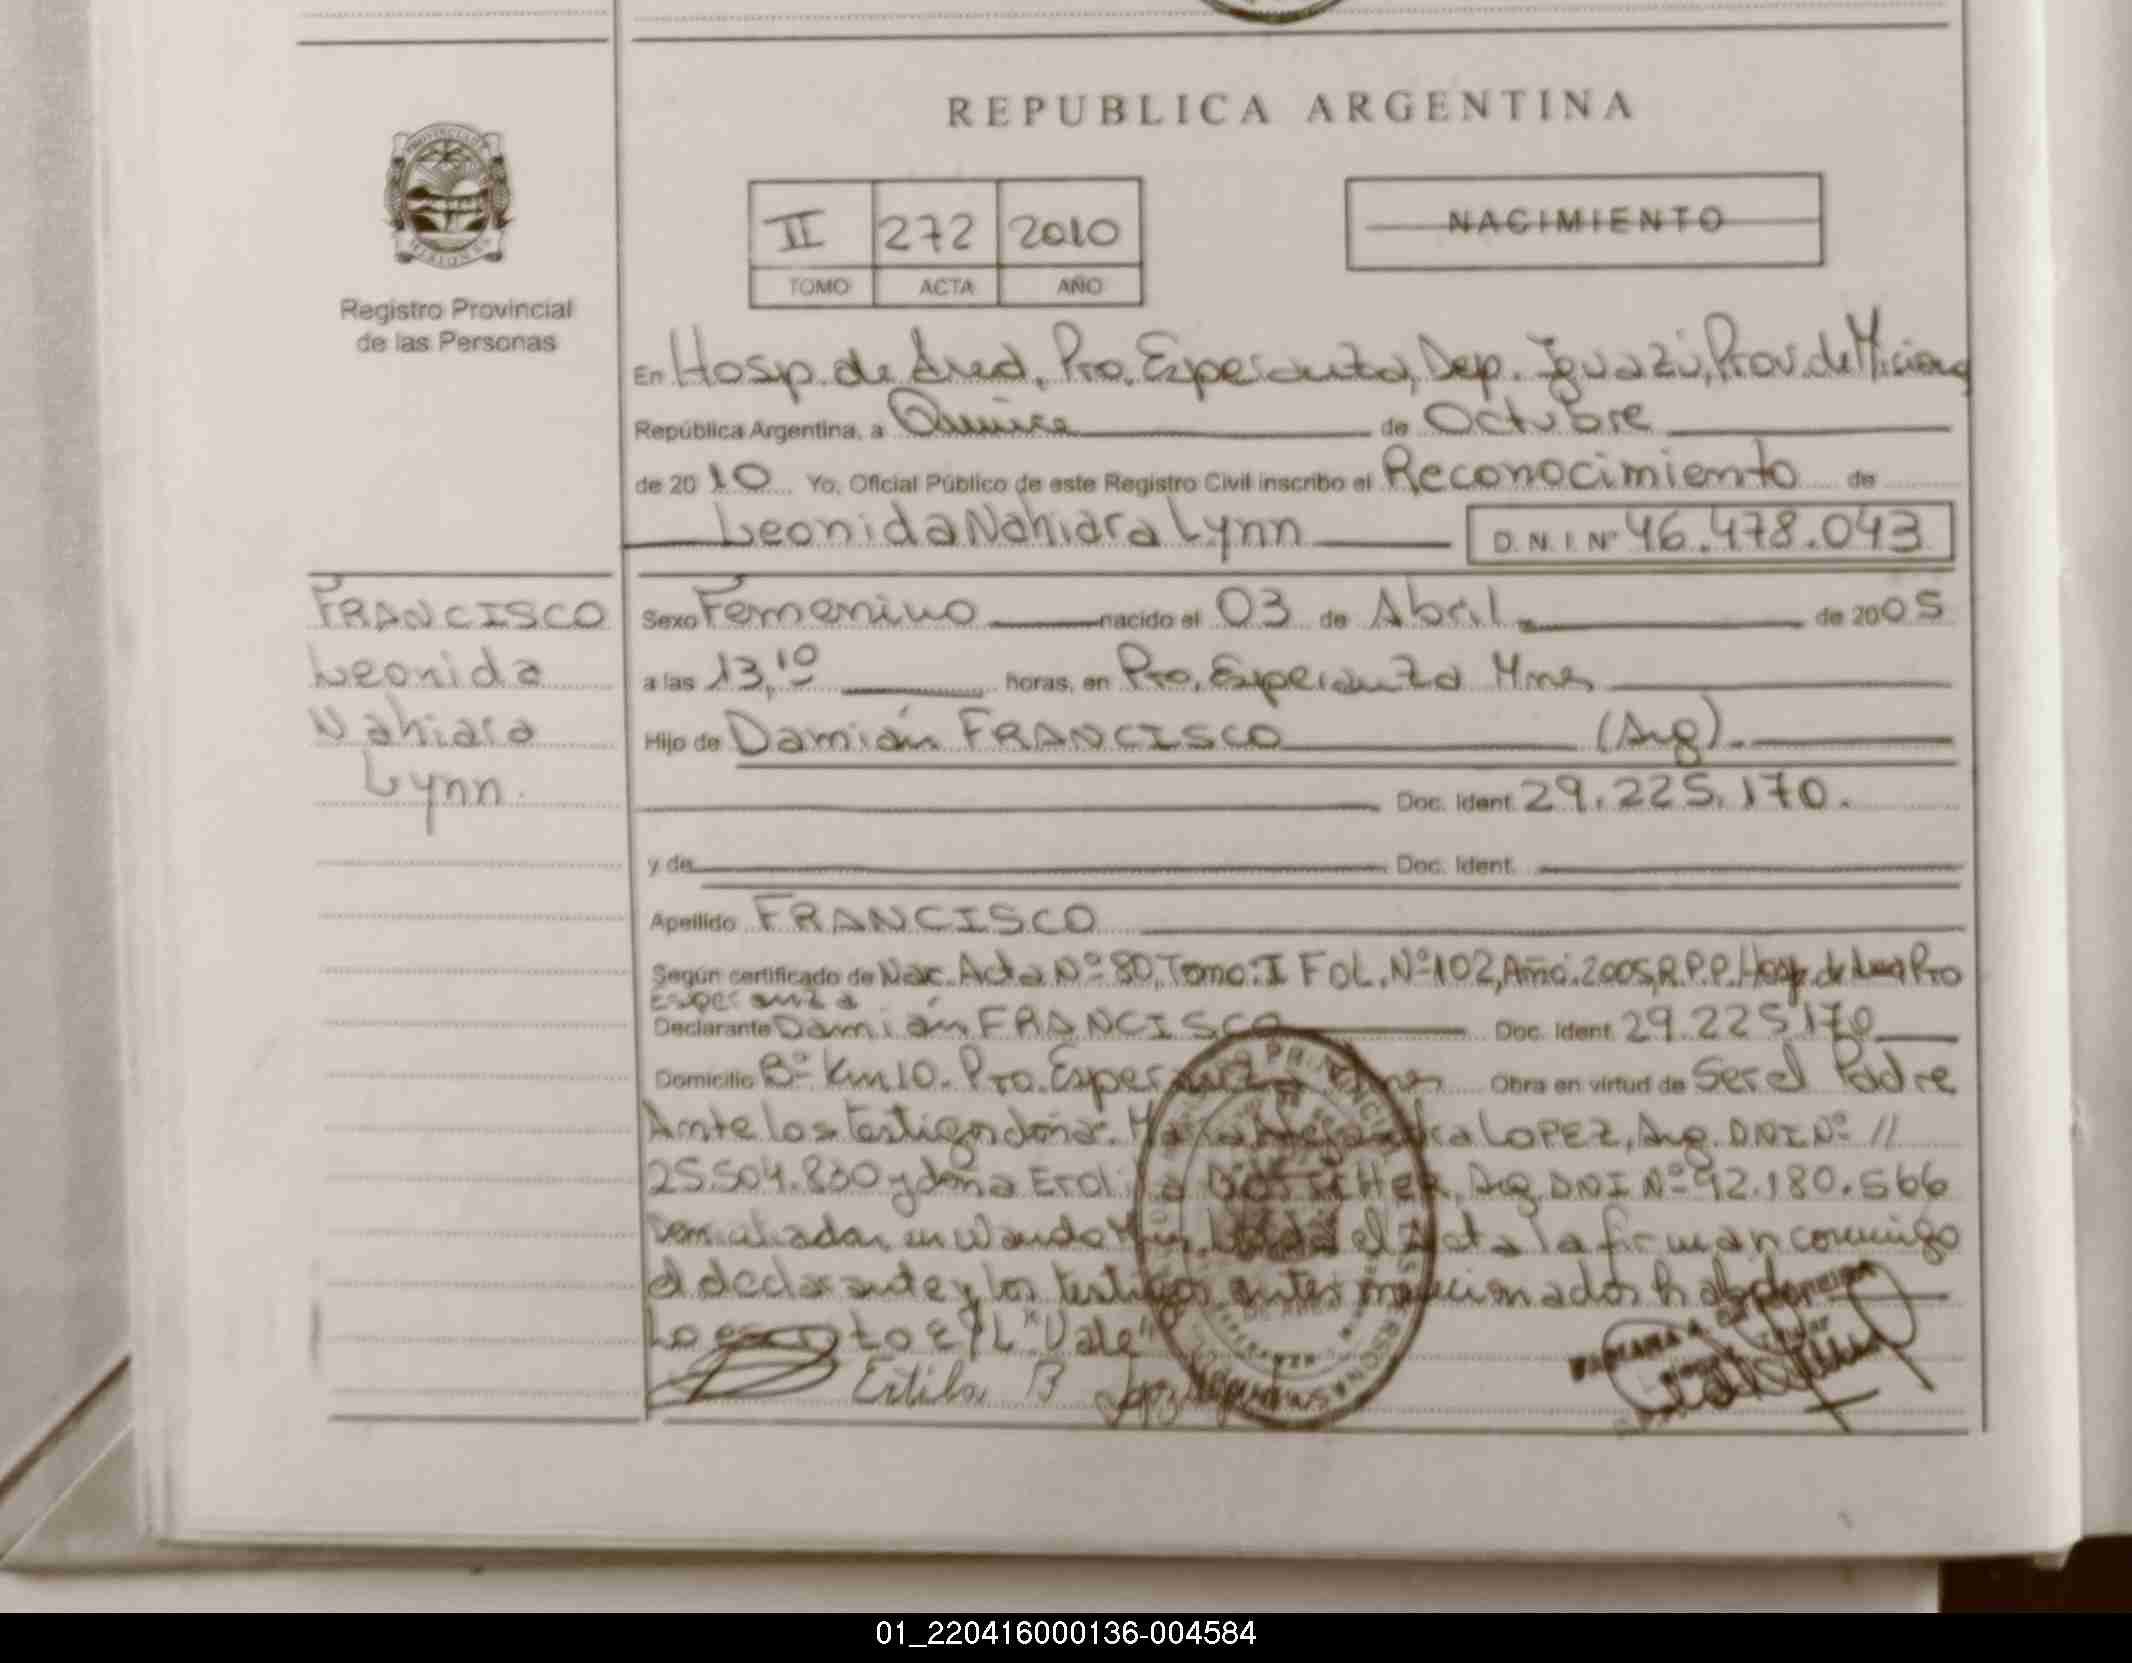 REPUBLICA ARGENTINA
PROVINCIA DE
MISIONES
Registro Provincial
de las Personas
II 272 2010
TOMO ACTA AÑO
NACIMIENTO
En Hosp. de Pto. Esperanza, Dep. Iguazú, Prov. de Misiones
República Argentina, a Quince de Octubre
de 2010 Yo, Oficial Público de este Registro Civil inscribo el Reconocimiento de
Leonida Nahiara Lynn D. N. I. Nº 46.478.043
FRANCISCO
Leonida
Nahiara
Lynn.
Sexo Femenino nacido el 03 de Abril de 2005
a las 13,10 horas, en Pto. Esperanza Mnes
Hijo de Damián FRANCISCO (Arg).
Doc. Ident. 29.225.170.
y de Doc. Ident.
Apellido FRANCISCO
Según certificado de Nac. Acta Nº 80, Tomo: I Fol. Nº 102, Año: 2005, R.P.P. Hosp. de Pto
Esperanza
Declarante Damián FRANCISCO Doc. Ident. 29.225.170
Domicilio Bº Km 10. Pto. Esperanza Mnes Obra en virtud de Ser el Padre
Ante los testigos doña: María LOPEZ, Arg. DNI Nº //
25.504.830 y doña Arg. DNI Nº 92.180.566
Domiciliadas en Wanda Mnes. Leída el Acta la firman conmigo
el declarante y los testigos antes mencionados
"Vale"
01_220416000136-004584